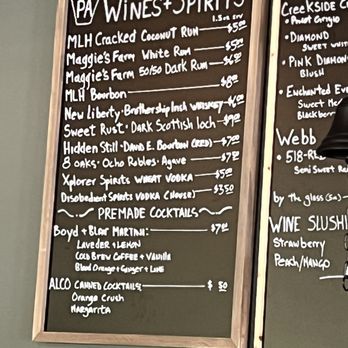 PA WINES + SPIRITS
1.5oz
MLH Cracked Coconut Rum $5.00
Maggie's Farm White Rum $5.00
Maggie's Farm 50/50 Dark Rum $6.00
MLH Bourbon $8.00
New Liberty · Brothership Irish Whiskey $6.00
Sweet Rust · Dark Scottish Loch $9.00
Hidden Still · David E. Bourbon (Red) $7.00
8 Oaks · Ocho Robles · Agave $7.00
Xplorer Spirits Wheat Vodka $5.00
Disobedient Spirits Vodka (House) $3.50
PREMADE COCKTAILS
Boyd + Blair Martini: $7.00
Laveder + Lemon
Cold Brew Coffee + Vanilla
Blood Orange + Ginger + Lime
ALCO Canned Cocktails: $ .50
Orange Crush
Margarita
Creekside Co
• Pinot Grigio
• Diamond
Sweet Whit
• Pink Diamon
Blush
• Enchanted Eve
Sweet Me
Blackber
Webb
• 518-R
Semi Sweet Re
by the glass (5oz)
WINE SLUSHI
Strawberry
Peach/Mango